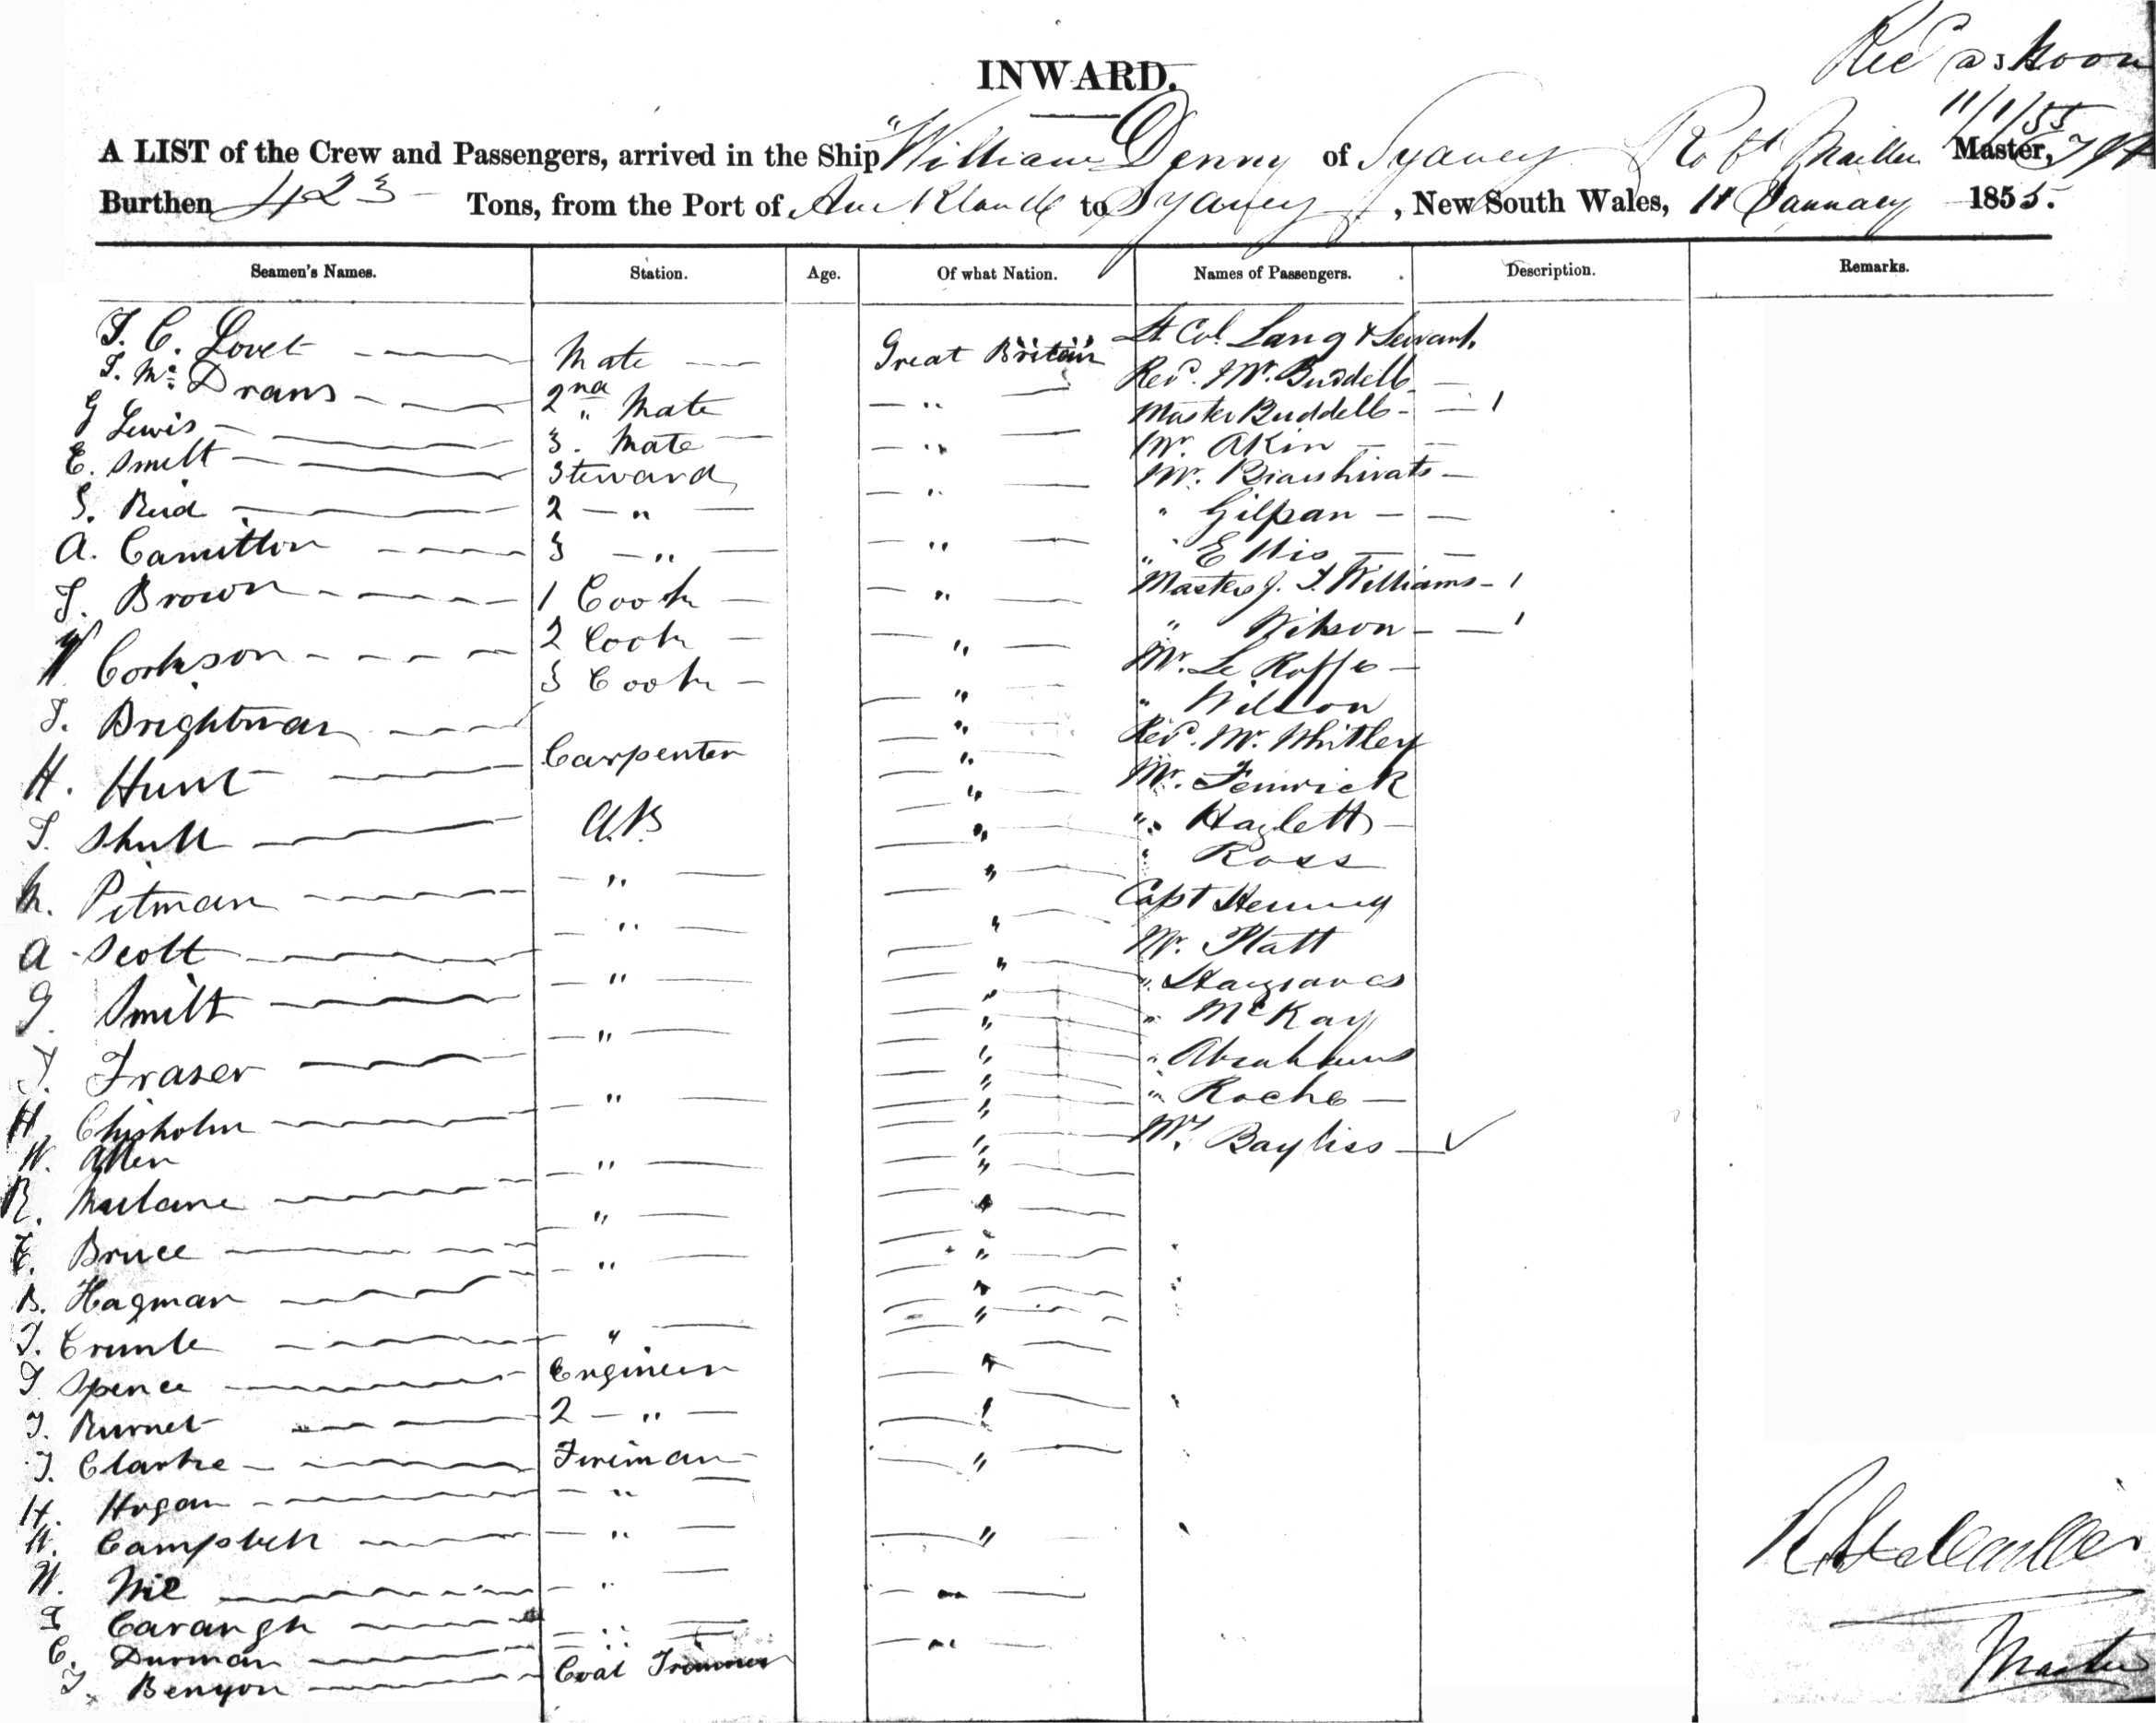 Recd
Noon
11/1/55
INWARD.
A LIST of the Crew and Passengers, arrived in the Ship "William Denny of Sydney Robt Mailler Master,
Burthen 423 Tons, from the Port of Auckland to Sydney, New South Wales, 11 January 1855.
Seamen's Names. Station. Age. Of what Nation. Names of Passengers. Description. Remarks.
T. C. Lovet Mate Great Britain Lt Col. Lang & Servant
Mc Drans 2nd Mate " Revd. Mr. Buddell
G Lewis 3. Mate " Master Buddell 1
E. Smilt Steward " Mr. Akin
Reid 2 " Mr.
A. Camitton 3 " " " Gilpan
Brown 1 Cook " " Ellis
W Corkson 2 Cook " Master J. T. Williams 1
Brightman 3 Cook " " Wilson 1
H. Hunt Carpenter " Mr. Le Roffe
A.B " " Wilson
Pitman " " Revd. Mr. Whitley
A Scott " " Mr. Fenwick
G. Smilt " " " Hazlett
Fraser " " " Ross
H. Chisholm " " Capt
W. Allen " " Mr. Platt
R. " " " Hargraves
E. Bruce " " " McKay
B. Hagman " " " Abrahams
" " " Roche
Spence Engineer " Bayliss
Burnet 2 " "
Clarke Fireman "
H. Hogan "
Campbell " "
" "
Cavangh "
C. Durman " "
Benyon Coal Trimmer
Master